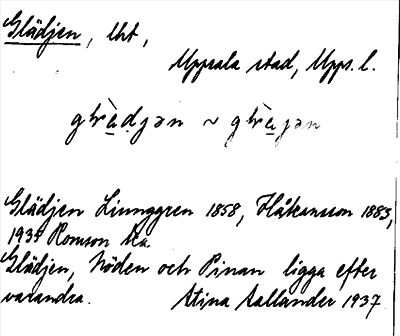 Glädjen, lht,
Uppsala stad, Upps. l.
Glädjen Linnggren 1858, Håkansson 1883,
1935 Romson
Glädjen, Nöden och Pinan ligga efter
varandra. Stina Aallander 1937.